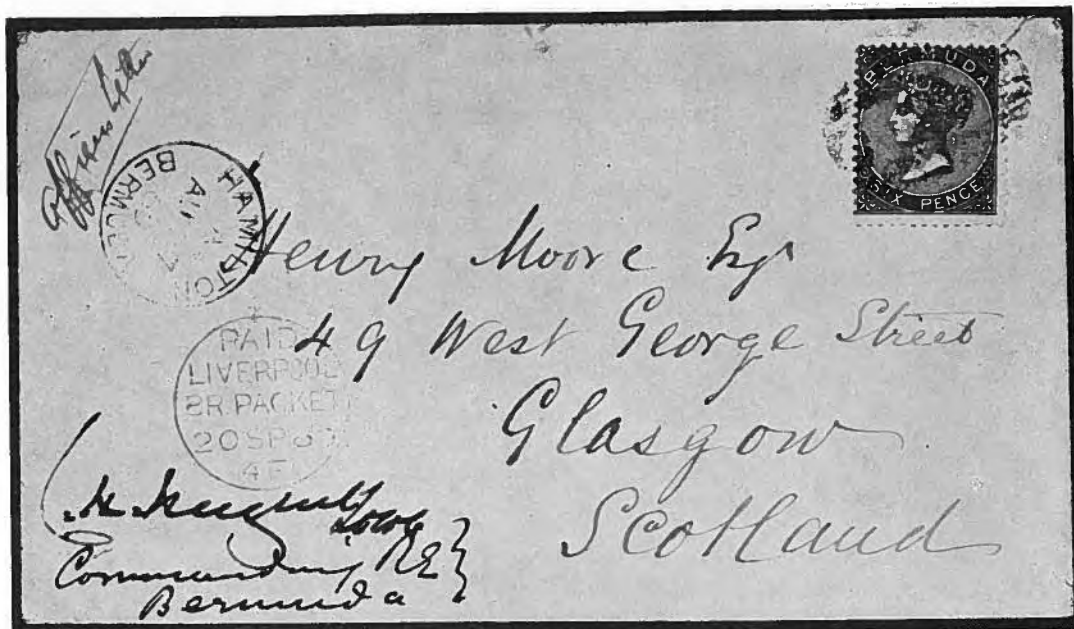 Officers Letter
BERMUDA
SIX PENCE
HAMILTON
BERMUD
Henry Moore Esqr
49 West George Street
Glasgow
Scotland
PAID
LIVERPOOL
BR. PACKET
20 SP 6
4
H.
Commanding RE
Bermuda